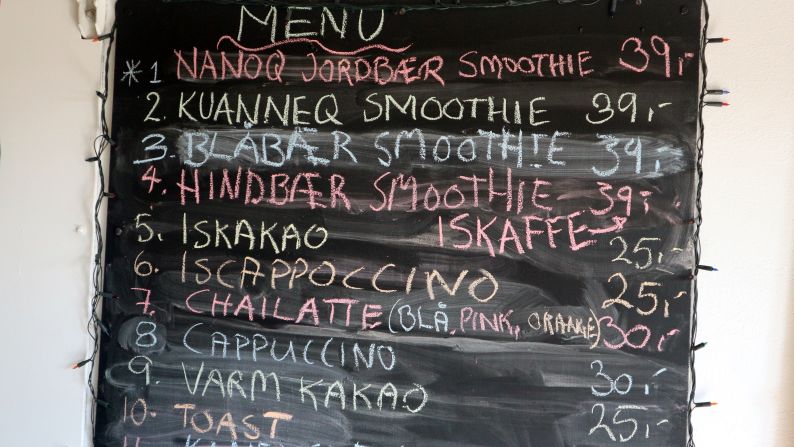 MENU
*1 NANOQ JORDBÆR SMOOTHIE 39,-
2. KUANNEQ SMOOTHIE 39,-
3. BLÅBÆR SMOOTHIE 39,-
4. HINDBÆR SMOOTHIE 39,-
5. ISKAKAO ISKAFFE→ 25,-
6. ISCAPPOCCINO 25,-
7. CHAILATTE (BLÅ, PINK, ORANGE) 30,-
8 CAPPUCCINO 30,-
9. VARM KAKAO 25,-
10. TOAST